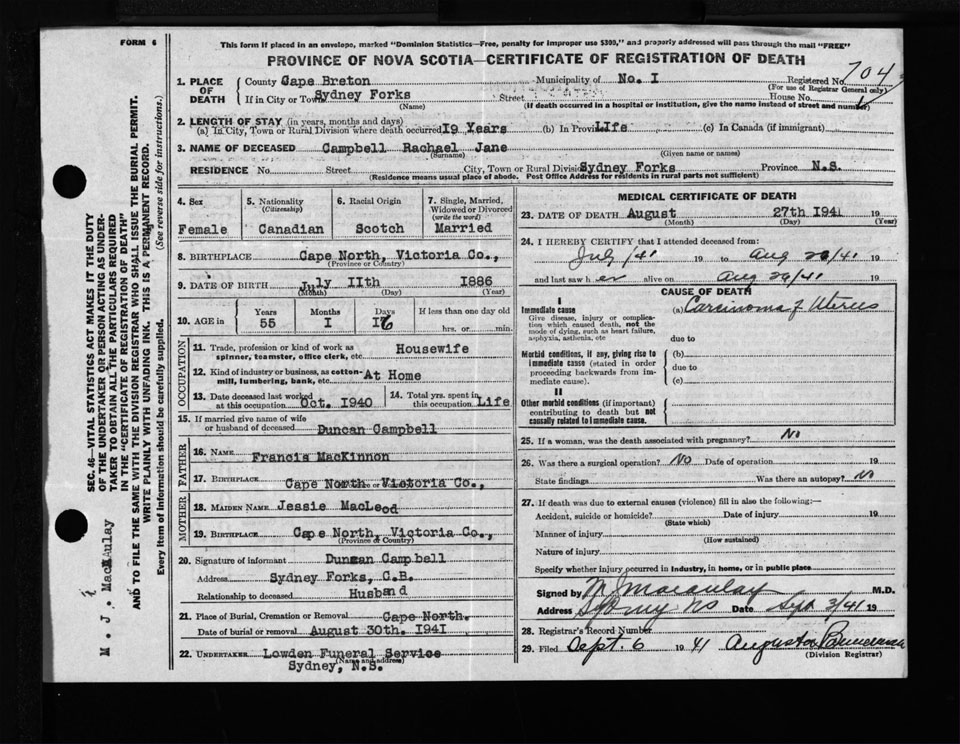 FORM 6
This form if placed in an envelope, marked "Dominion Statistics—Free, penalty for improper use $300," and properly addressed will pass through the mail "FREE"
PROVINCE OF NOVA SCOTIA—CERTIFICATE OF REGISTRATION OF DEATH
1. PLACE OF DEATH
County Cape Breton Municipality of No. I Registered No. 704
(For use of Registrar General only)
If in City or Town Sydney Forks Street House No.
(Name) (If death occurred in a hospital or institution, give the name instead of street and number)
2. LENGTH OF STAY (in years, months and days)
(a) In City, Town or Rural Division where death occurred I9 Years (b) In Province Life (c) In Canada (if immigrant)
3. NAME OF DECEASED Campbell Rachael Jane
(Surname) (Given name or names)
RESIDENCE No. Street City, Town or Rural Division Sydney Forks Province N.S.
(Residence means usual place of abode. Post Office Address for residents in rural parts not sufficient)
4. Sex Female
5. Nationality (Citizenship) Canadian
6. Racial Origin Scotch
7. Single, Married, Widowed or Divorced (write the word) Married
8. BIRTHPLACE Cape North, Victoria Co.,
(Province or Country)
9. DATE OF BIRTH July IIth I886
(Month) (Day) (Year)
10. AGE in Years Months Days If less than one day old
55 I I6 hrs. or min.
OCCUPATION
11. Trade, profession or kind of work as spinner, teamster, office clerk, etc. Housewife
12. Kind of industry or business, as cotton-mill, lumbering, bank, etc. At Home
13. Date deceased last worked at this occupation Oct. I940
14. Total yrs. spent in this occupation Life
15. If married give name of wife or husband of deceased Duncan Campbell
FATHER
16. NAME Francis MacKinnon
17. BIRTHPLACE Cape North Victoria Co.,
MOTHER
18. MAIDEN NAME Jessie MacLeod
19. BIRTHPLACE Cape North, Victoria Co.,
(Province or Country)
20. Signature of informant Duncan Campbell
Address Sydney Forks, C.B.
Relationship to deceased Husband
21. Place of Burial, Cremation or Removal Cape North.
Date of burial or removal August 30th. I94I
22. UNDERTAKER Lowden Funeral Service
(Name and address)
Sydney, N.S.
MEDICAL CERTIFICATE OF DEATH
23. DATE OF DEATH August 27th I94I 19
(Month) (Day) (Year)
24. I HEREBY CERTIFY that I attended deceased from:
July/41 19 to Aug 26/41 19
and last saw h er alive on Aug 26/41 19
CAUSE OF DEATH
I
Immediate cause
Give disease, injury or complication which caused death, not the mode of dying, such as heart failure, asphyxia, asthenia, etc
(a) Carcinoma of Uterus
due to
Morbid conditions, if any, giving rise to immediate cause (stated in order proceeding backwards from immediate cause).
(b)
due to
(c)
II
Other morbid conditions (if important) contributing to death but not causally related to immediate cause.
25. If a woman, was the death associated with pregnancy? No
26. Was there a surgical operation? No Date of operation 19
State findings Was there an autopsy? No
27. If death was due to external causes (violence) fill in also the following:—
Accident, suicide or homicide? Date of injury 19
(State which)
Manner of injury
(How sustained)
Nature of injury
Specify whether injury occurred in industry, in home, or in public place
Signed by M J Macaulay M.D.
Address Sydney NS Date Sept 3/41 19
28. Registrar's Record Number
29. Filed Sept. 6 19 41
(Division Registrar)
SEC. 46—VITAL STATISTICS ACT MAKES IT THE DUTY
OF THE UNDERTAKER OR PERSON ACTING AS UNDERTAKER TO OBTAIN ALL THE PARTICULARS REQUIRED
IN THE "CERTIFICATE OF REGISTRATION OF DEATH"
AND TO FILE THE SAME WITH THE DIVISION REGISTRAR WHO SHALL ISSUE THE BURIAL PERMIT.
WRITE PLAINLY WITH UNFADING INK. THIS IS A PERMANENT RECORD.
Every item of information should be carefully supplied. (See reverse side for instructions.)
M. J. MacAulay